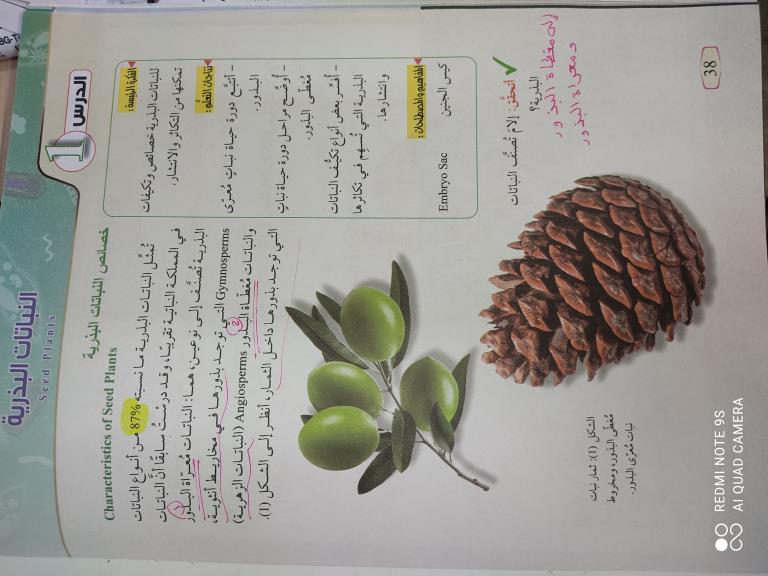 النباتات البذرية
Seed Plants
الدرس 1
خصائص النباتات البذرية
Characteristics of Seed Plants
تُمثّل النباتات البذرية ما نسبته 87% من أنواع النباتات
في المملكة النباتية تقريبًا، وقد درستُ سابقًا أنَّ النباتات
البذرية تُصنَّف إلى نوعين، هما: النباتات مُعرّاة البذور
Gymnosperms التي توجد بذورها في مخاريط أنثوية،
والنباتات مُغطّاة البذور Angiosperms (النباتات الزهرية)
التي توجد بذورها داخل الثمار، أنظر إلى الشكل (1).
1
2
الفكرة الرئيسة:
للنباتات البذرية خصائص وتكيفات
تمكنها من التكاثر والانتشار.
نتاجات التعلم:
- أتتبَّع دورة حياة نبات مُعرّى
البذور.
- أوضّح مراحل دورة حياة نبات
مُغطّى البذور.
- أفسّر بعض أنواع تكيُّف النباتات
البذرية التي تُسهِم في تكاثرها
وانتشارها.
المفاهيم والمصطلحات:
كيس الجنين
Embryo Sac
أتحقَّق: إلامَ تُصنَّف النباتات
البذرية؟
إلى مغطاة البذور
ومعراة البذور
الشكل (1): ثمار نبات
مُغطّى البذور، ومخروط
نبات مُعرّى البذور.
38
REDMI NOTE 9S
AI QUAD CAMERA